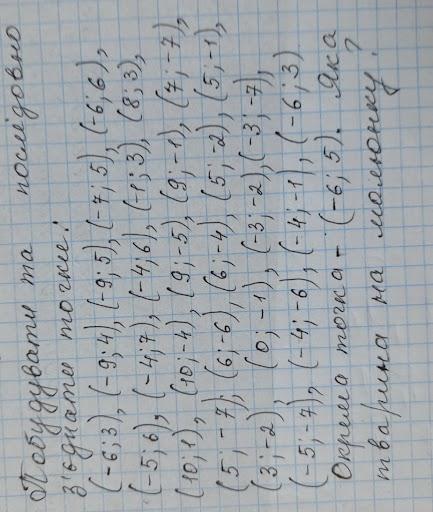 Побудувати та послідовно
з'єднати точки:
(-6; 3), (-9; 4), (-9; 5), (-7; 5), (-6; 6),
(-5; 6), (-4; 7), (-4; 6), (-1; 3), (8; 3),
(10; 1), (10; -4), (9; -5), (9; -1), (7; -7),
(5; -7), (6; -6), (6; -4), (5; -2), (5; -1),
(3; -2), (0; -1), (-3; -2), (-3; -7),
(-5; -7), (-4; -6), (-4; -1), (-6; 3)
Окрима точка - (-6; 5). Яка
тварина на малюнку?